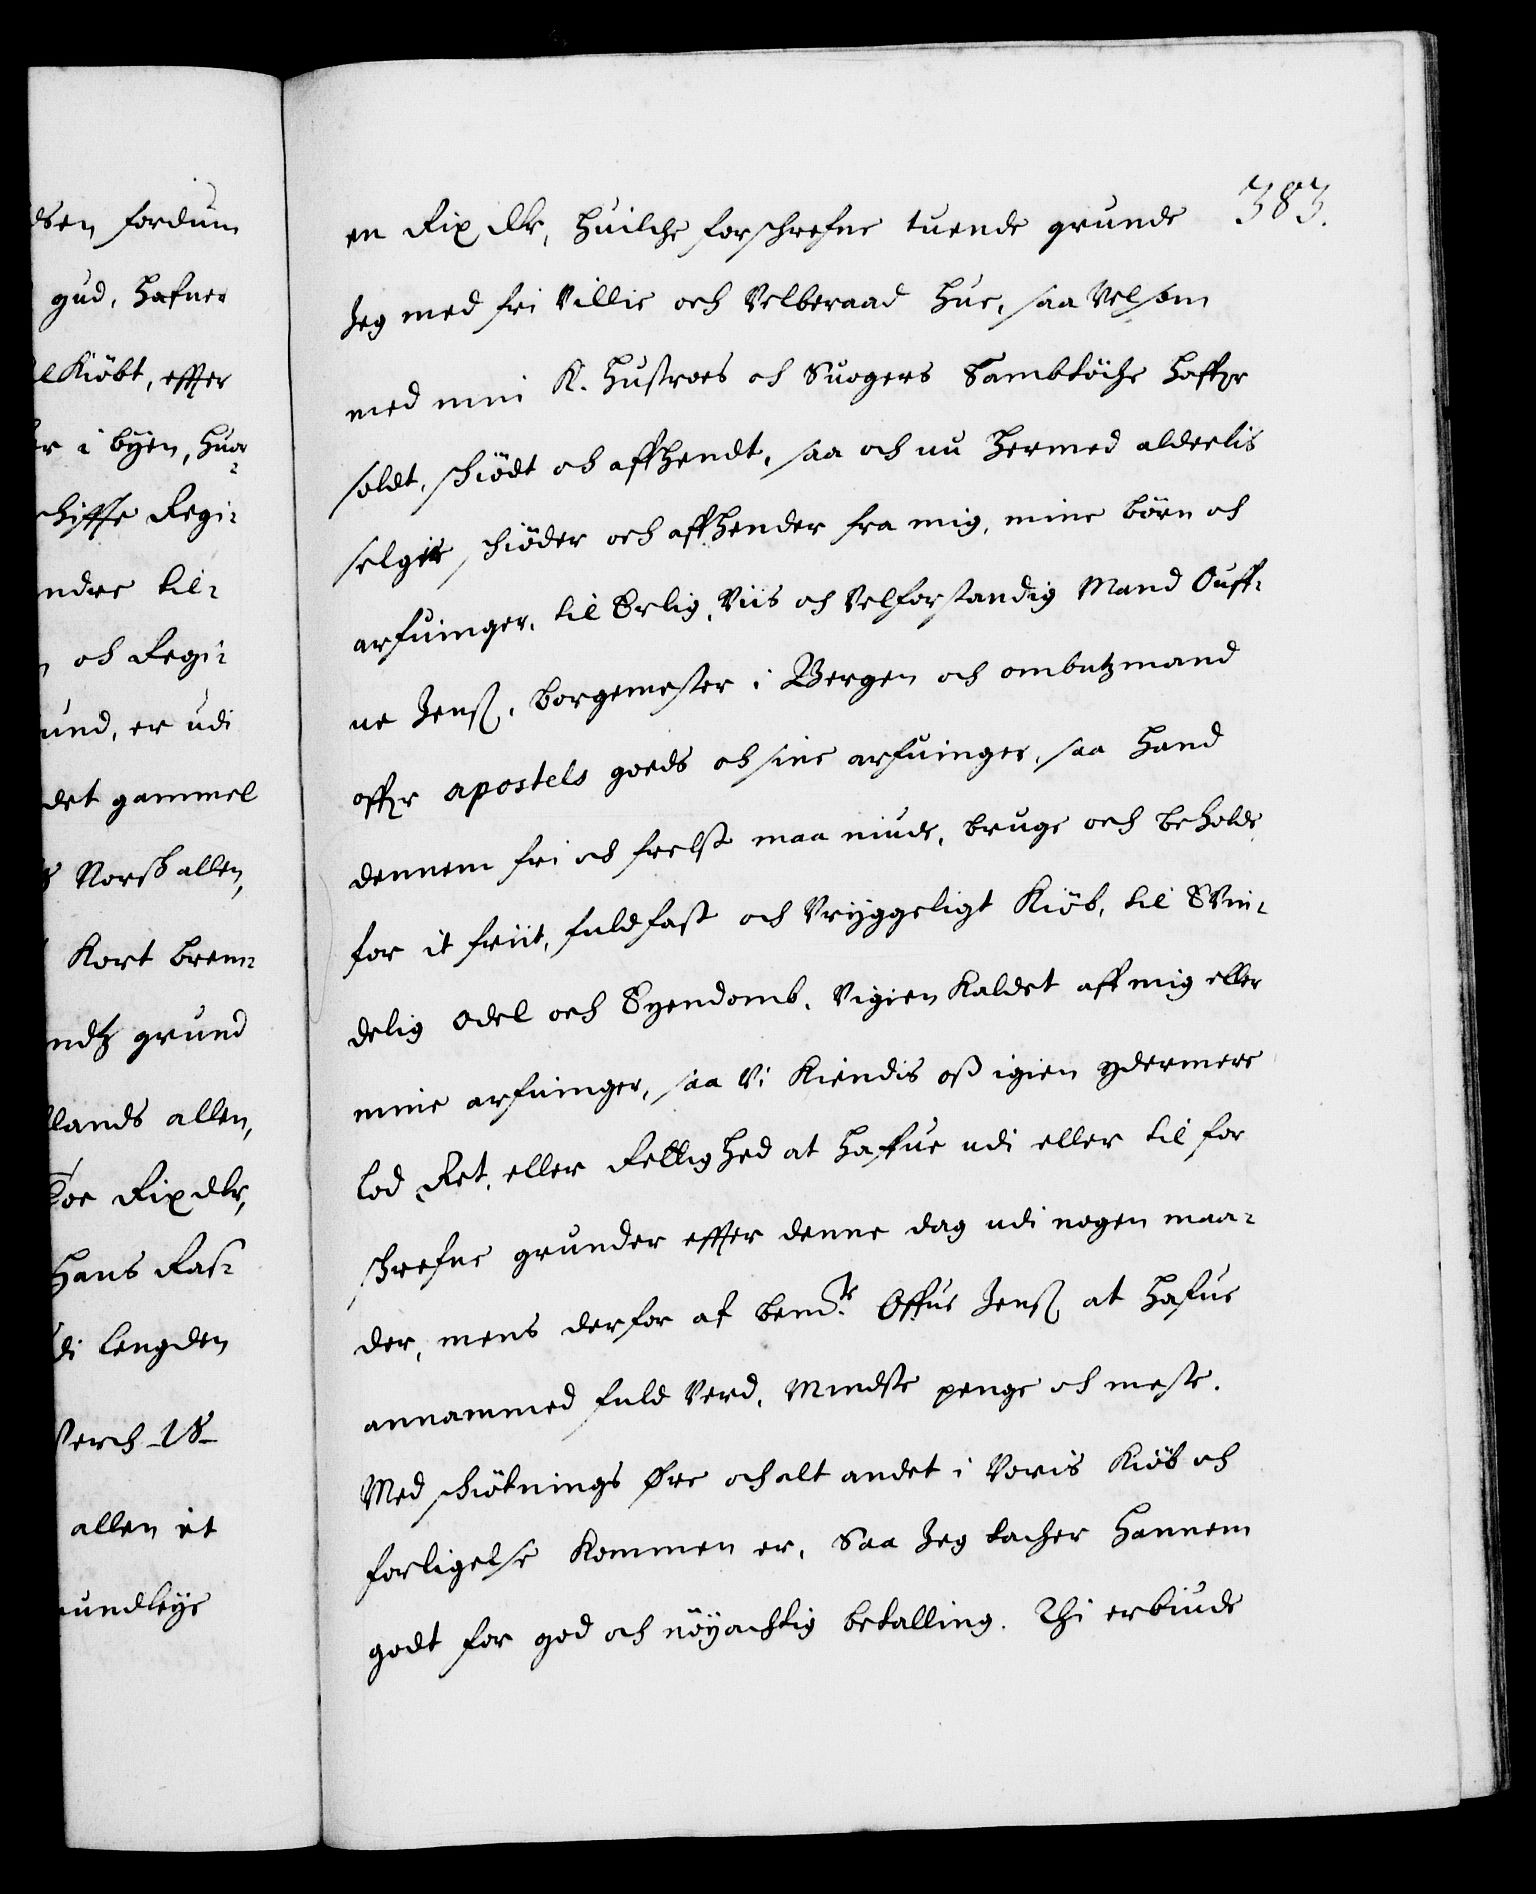 dsen fordum
gud, hafuer
Kiöbt, effter
er i byen, huor-
chiffte Regi-
andre til-
och Regi-
und, er udi
det gammel
Norsk allen,
Kort brem-
ndtz grund
lands allen,
Toe Rix dlr,
Hans Ras-
di lengden
Verch 18
allen it
undleye
383.
en Rix dlr, huilche forschrefne tuende grunde
Jeg med fri Villie och Velberaad hue, saa Vel som
med min K. Hustroes och Suogers Sambtöche haffr
soldt, schiödt och affhendt, saa och nu hermed alderlis
selger, schiöder och affhender fra mig, mine börn och
arfuinger, til Erlig, Viis och Velforstandig Mand Ouff-
ue Jenß, borgemester i Bergen och ombutzmand
offr apostels goeds och sine arfuinger, saa hand
dennem fri och frelst maa niude, bruge och beholde
for it friit, fuldfast och Vryggeligt Kiöb, til Evin-
delig odel och Eyendomb, Vigien Kaldet aff mig eller
mine arfuinger, saa Vi Kiendis oß igien ydermere
lod, Ret, eller Rettighed at hafue udi eller til for
schrefne grunder effter denne dag udi nogen maa-
der, mens derfor af bemte Offue Jenß at hafue
annammed fuld Verd, Mindste penge och meste.
Med schiötnings Øre och alt andet i Voris Kiöb och
forligelse Kommen er, Saa Jeg tacher hannem
godt for god och nöyachtig betalling. Thi erbiude